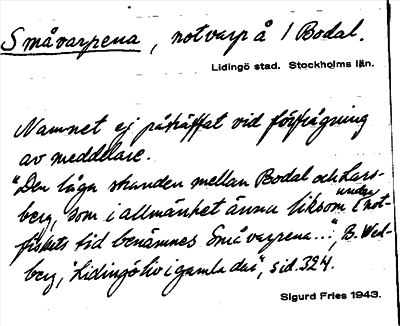 Småvarpena, notvarp å / Bodal.
Lidingö stad. Stockholms län.
Namnet ej påträffat vid förfrågning
av meddelare.
"Den låga stranden mellan Bodal och Lars-
berg, som i allmänhet ännu liksom under not-
fiskets tid benämnes Småvarpena...", B. Wed-
berg, "Lidingöliv i gamla dar", sid. 324.
Sigurd Fries 1943.